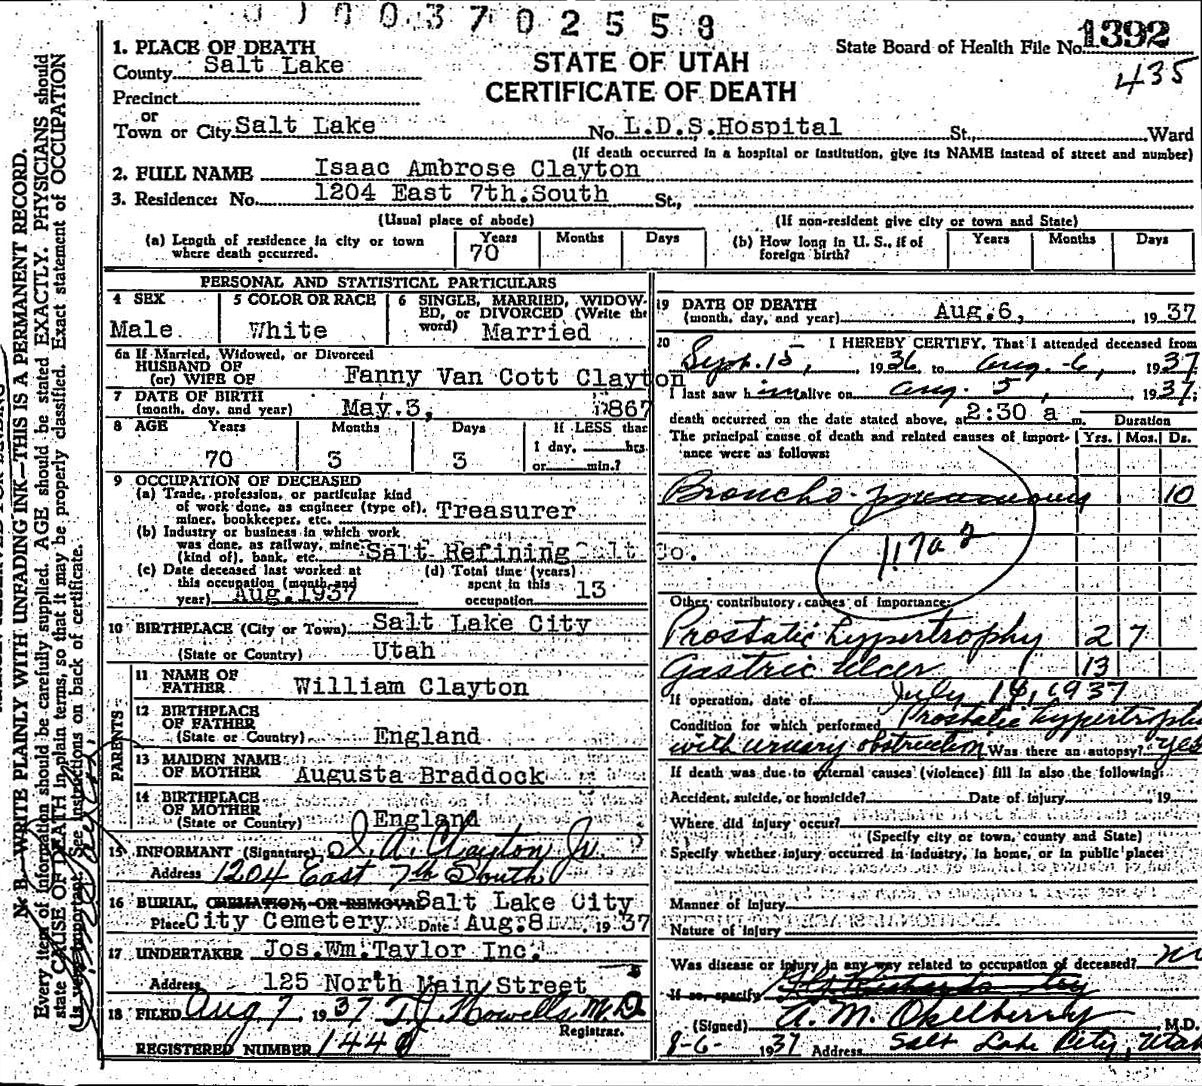 0 0 0 3 7 0 2 5 5 8
1. PLACE OF DEATH
County Salt Lake
Precinct
or
Town or City Salt Lake No. L.D.S.Hospital St., Ward
STATE OF UTAH
CERTIFICATE OF DEATH
State Board of Health File No. 1392
435
(If death occurred in a hospital or institution, give its NAME instead of street and number)
2. FULL NAME Isaac Ambrose Clayton
3. Residence: No. 1204 East 7th.South St.,
(Usual place of abode) (If non-resident give city or town and State)
(a) Length of residence in city or town where death occurred. Years 70 Months Days
(b) How long in U. S., if of foreign birth? Years Months Days
PERSONAL AND STATISTICAL PARTICULARS
4 SEX Male
5 COLOR OR RACE White
6 SINGLE, MARRIED, WIDOWED, or DIVORCED (Write the word) Married
6a If Married, Widowed, or Divorced
HUSBAND OF
(or) WIFE OF Fanny Van Cott Clayton
7 DATE OF BIRTH
(month, day, and year) May.3, 1867
8 AGE Years 70 Months 3 Days 3
If LESS than
1 day, hrs.
or min.?
9 OCCUPATION OF DECEASED
(a) Trade, profession, or particular kind
of work done, as engineer (type of),
miner, bookkeeper, etc. Treasurer
(b) Industry or business in which work
was done, as railway, mine
(kind of), bank, etc. Salt Refining Salt Co.
(c) Date deceased last worked at
this occupation (month and
year) Aug.1937
(d) Total time (years)
spent in this
occupation 13
10 BIRTHPLACE (City or Town) Salt Lake City
(State or Country) Utah
PARENTS
11 NAME OF
FATHER William Clayton
12 BIRTHPLACE
OF FATHER
(State or Country) England
13 MAIDEN NAME
OF MOTHER Augusta Braddock
14 BIRTHPLACE
OF MOTHER
(State or Country) England
15 INFORMANT (Signature) I. A. Clayton Jr.
Address 1204 East 7th South
16 BURIAL, CREMATION, OR REMOVAL Salt Lake City
Place City Cemetery Date Aug.8 1937
17 UNDERTAKER Jos.Wm.Taylor Inc.
Address 125 North Main Street
18 FILED Aug 7 1937 T.J. Howells M.D.
Registrar.
REGISTERED NUMBER 1440
19 DATE OF DEATH
(month, day, and year) Aug.6, 1937
20 I HEREBY CERTIFY, That I attended deceased from
Sept. 15, 1936 to Aug. 6, 1937
I last saw him alive on Aug. 5, 1937;
death occurred on the date stated above, at 2:30 a m.
Duration
The principal cause of death and related causes of importance were as follows: Yrs. Mos. Ds.
Broncho-pneumonia 10
117a2
Other contributory causes of importance:
Prostatic hypertrophy 2 7
Gastric Ulcer 13
If operation, date of July 1937
Condition for which performed Prostatic hypertrophy
with urinary obstruction Was there an autopsy? yes
If death was due to external causes (violence) fill in also the following:
Accident, suicide, or homicide? Date of injury , 19
Where did injury occur?
(Specify city or town, county and State)
Specify whether injury occurred in industry, in home, or in public place:
Manner of injury
Nature of injury
Was disease or injury in any way related to occupation of deceased? no
If so, specify
(Signed) A. M. Okelberry M.D.
8-6- 1937 Address Salt Lake City, Utah
N. B.—WRITE PLAINLY WITH UNFADING INK—THIS IS A PERMANENT RECORD.
Every item of information should be carefully supplied. AGE should be stated EXACTLY. PHYSICIANS should
state CAUSE OF DEATH in plain terms, so that it may be properly classified. Exact statement of OCCUPATION
is very important. See instructions on back of certificate.